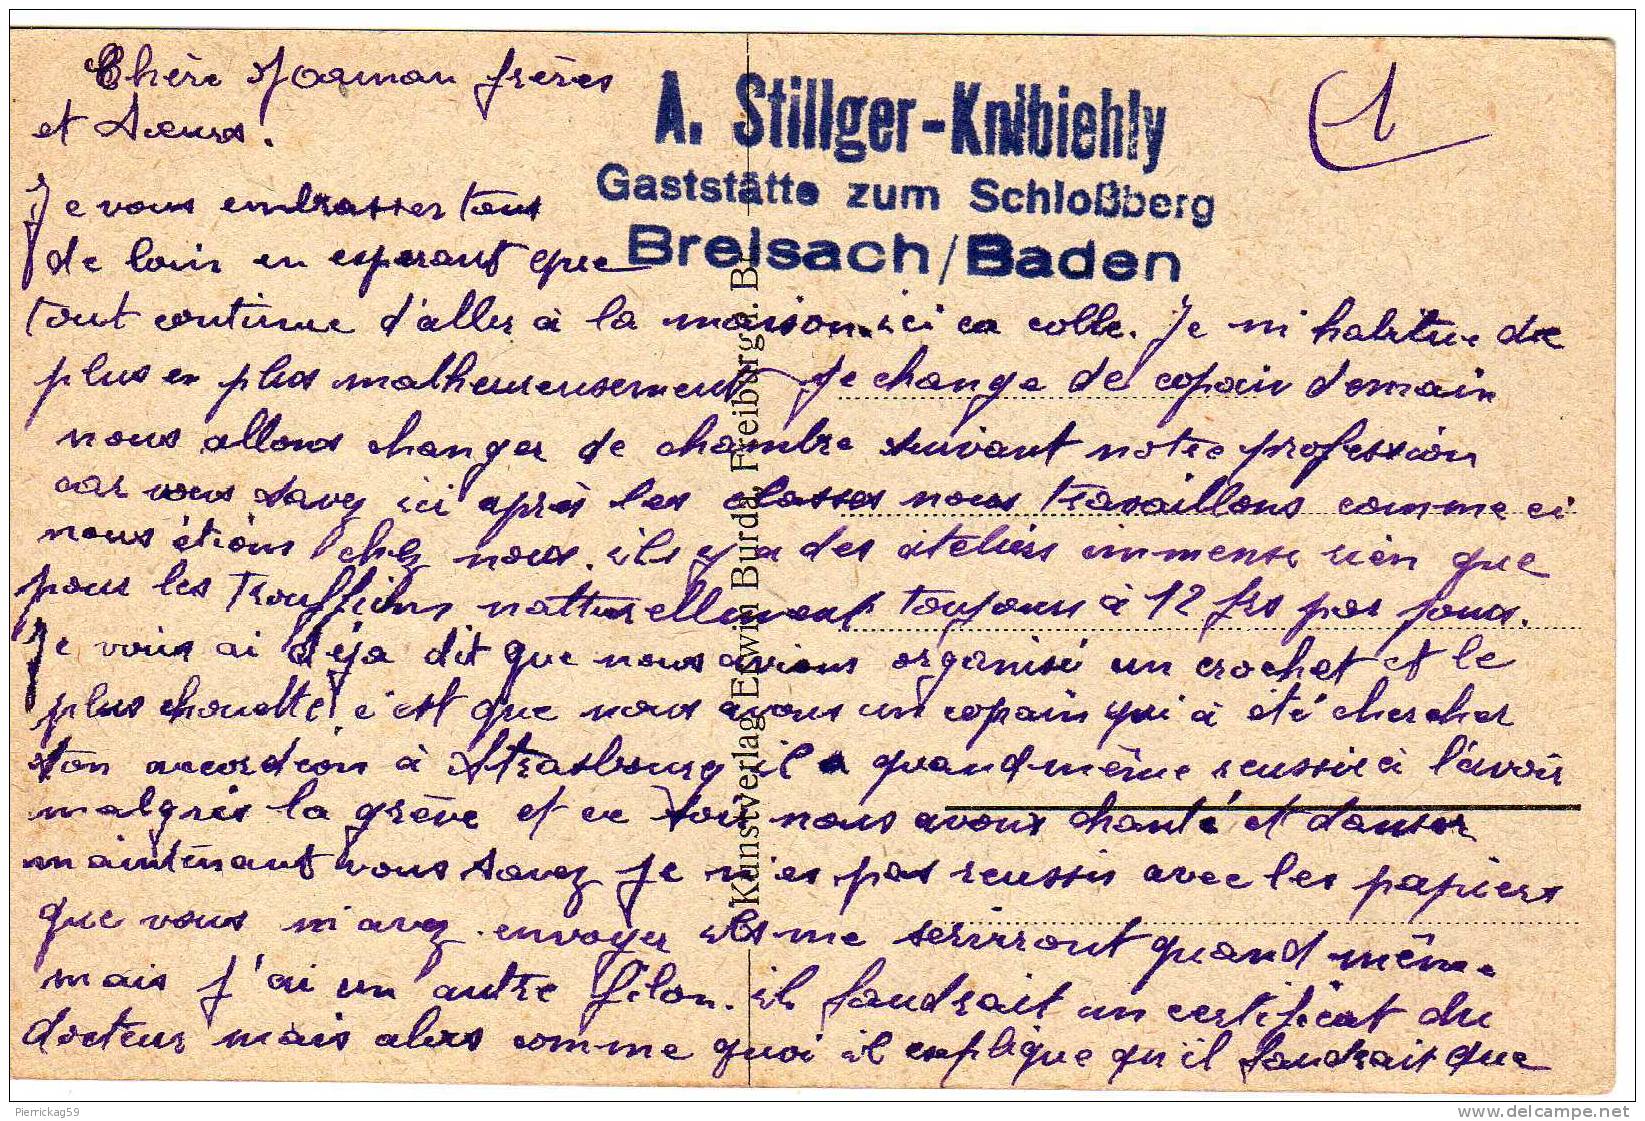 Chère Maman frères
et Sœurs.
A. Stillger-Knibiehly
Gaststätte zum Schloßberg
Breisach/Baden
1
Je vous embrasser tous
de loin en esperant que
tout continue d'aller à la maison. ici ca colle. Je m'habitue de
plus en plus malheureusement je change de copain demain
nous allons changer de chambre suivant notre profession
car vous savez ici après les classes nous travaillons comme ci
nous étions chez nous. ils y a des ateliers immense rien que
pour les trouffions natturellement toujours à 12 frs par jours.
Je vous ai déja dit que nous avions organisé un crochet et le
plus chouette c'est que nous avons un copain qui à été chercher
son accordéon à Strasbourg il a quand même reussir à l'avoir
malgrès la grève et ce soir nous avons chanté et danser
maintenant vous savez je n'es pas reussis avec les papiers
que vous m'avez envoyer ils me serviront quand même
mais j'ai un autre filon. il faudrait un certificat du
docteur mais alors comme quoi il explique qu'il faudrait que
Kunstverlag Erwin Burda, Freiburg i. B
Pierrickag59
www.delcampe.net